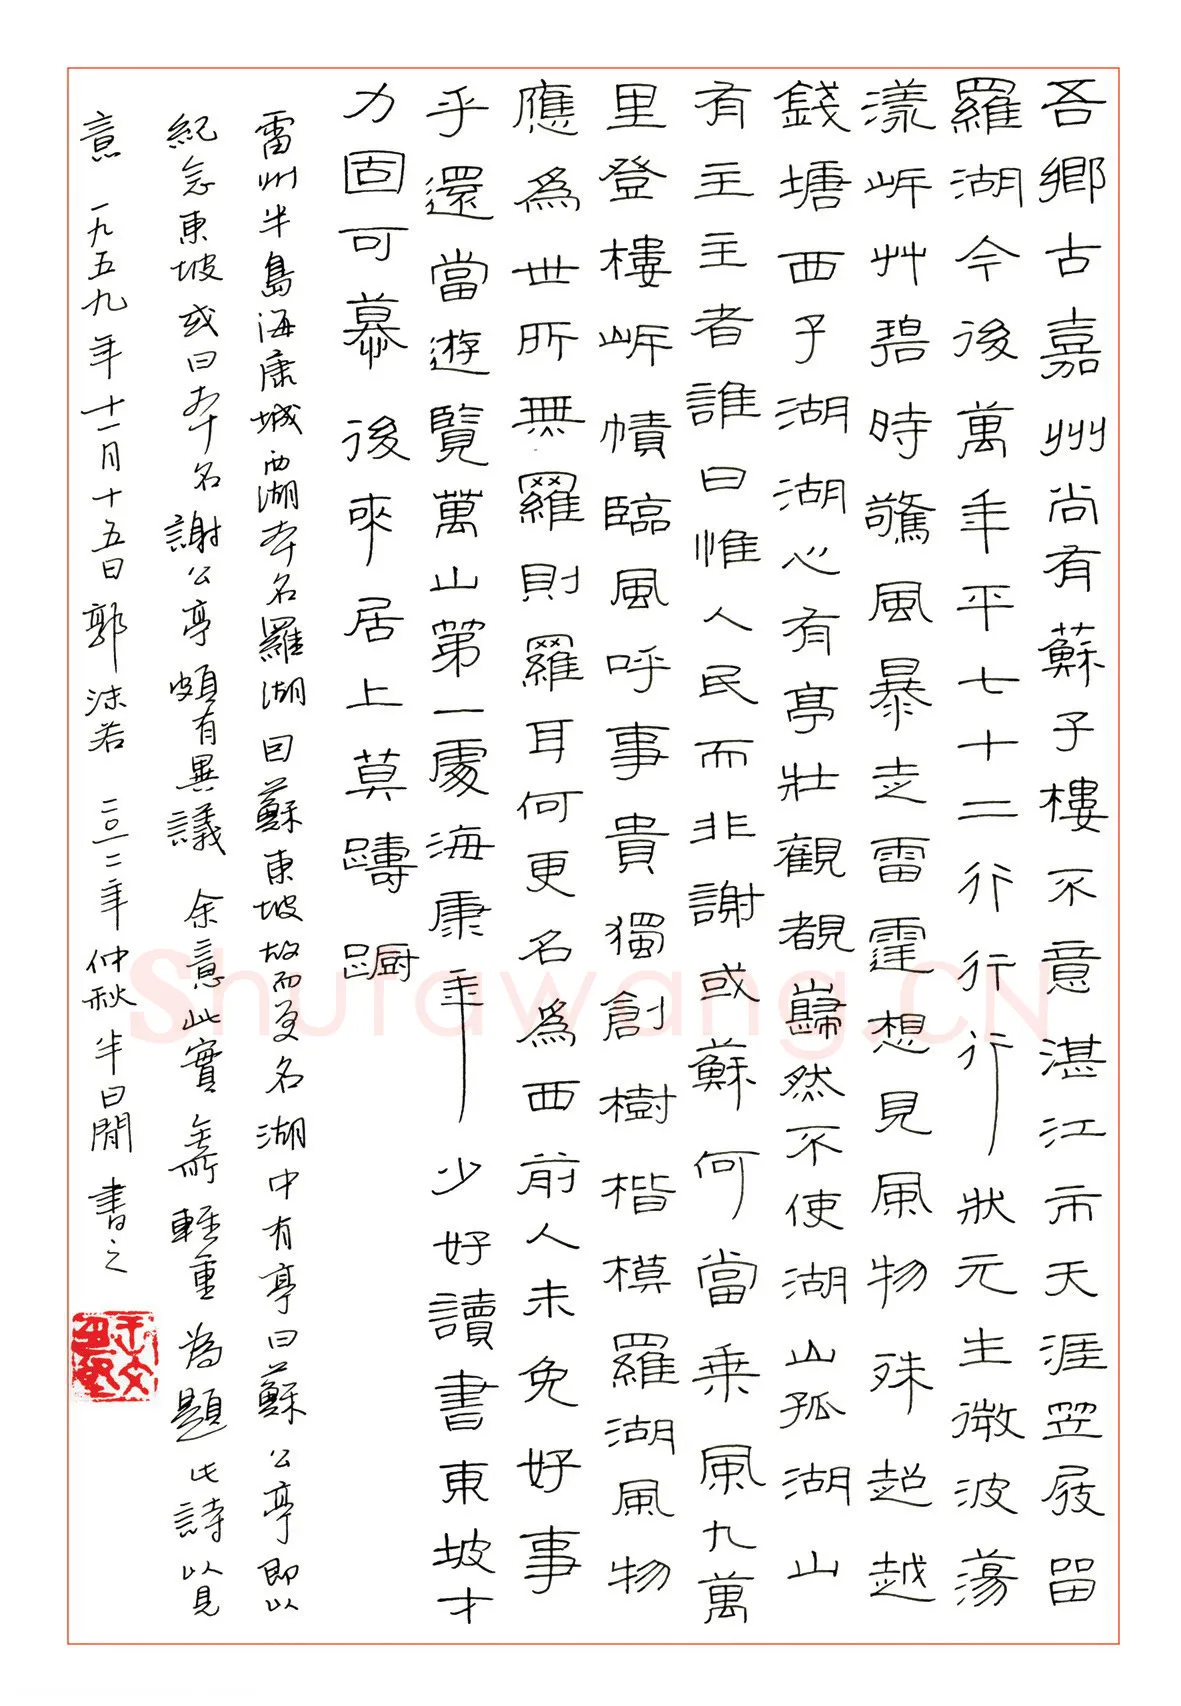 吾鄉古嘉州尚有蘇子樓不意湛江市天涯笠屐留
羅湖今後萬年平七十二行行行狀元生微波蕩
漾岍艸碧時驚風暴走雷霆想見風物殊超越
錢塘西子湖湖心有亭壯觀覩巋然不使湖山孤湖山
有主主者誰曰惟人民而非謝或蘇何當乘風九萬
里登樓岍幘臨風呼事貴獨創樹楷模羅湖風物
應為世所無羅則羅耳何更名為西前人未免好事
乎還當遊覽萬山第一處海康年少好讀書東坡才
力固可慕後來居上莫躊躕
雷州半島海康城西湖本名羅湖因蘇東坡故而更名湖中有亭曰蘇公亭即以
紀念東坡或曰本名謝公亭頗有異議余意此實無所輕重為題此詩以見
意一九五九年十一月十五日郭沫若二〇一二年仲秋半日閒書之
Shufawang.CN